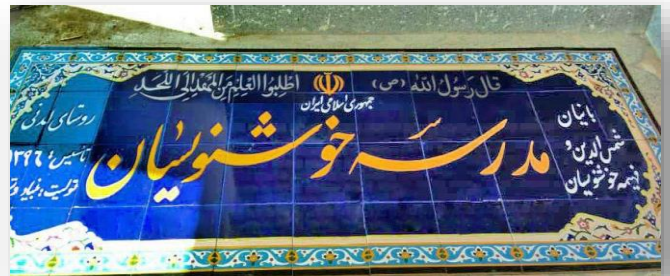 قال رَسُولُ الله (ص) اُطلُبُوا العِلمَ مِنَ المَهدِ اِلَی اللَّحد
جمهوری اسلامی ایران
مدرسه خوشنویسان
بانیان
شمس الدین و
خوشنویسان
روستای
تاسیس: ۱۳۹۶